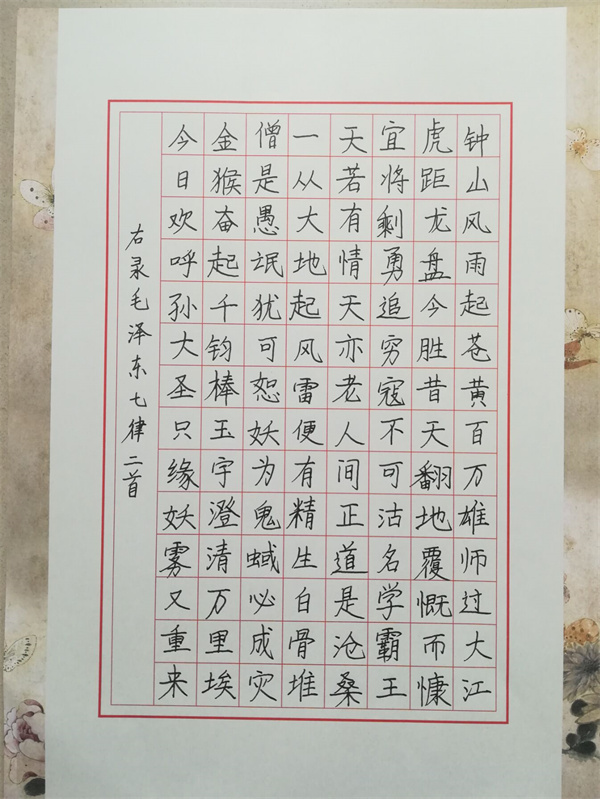 钟山风雨起苍黄百万雄师过大江
虎距龙盘今胜昔天翻地覆慨而慷
宜将剩勇追穷寇不可沽名学霸王
天若有情天亦老人间正道是沧桑
一从大地起风雷便有精生白骨堆
僧是愚氓犹可恕妖为鬼蜮必成灾
金猴奋起千钧棒玉宇澄清万里埃
今日欢呼孙大圣只缘妖雾又重来
右录毛泽东七律二首